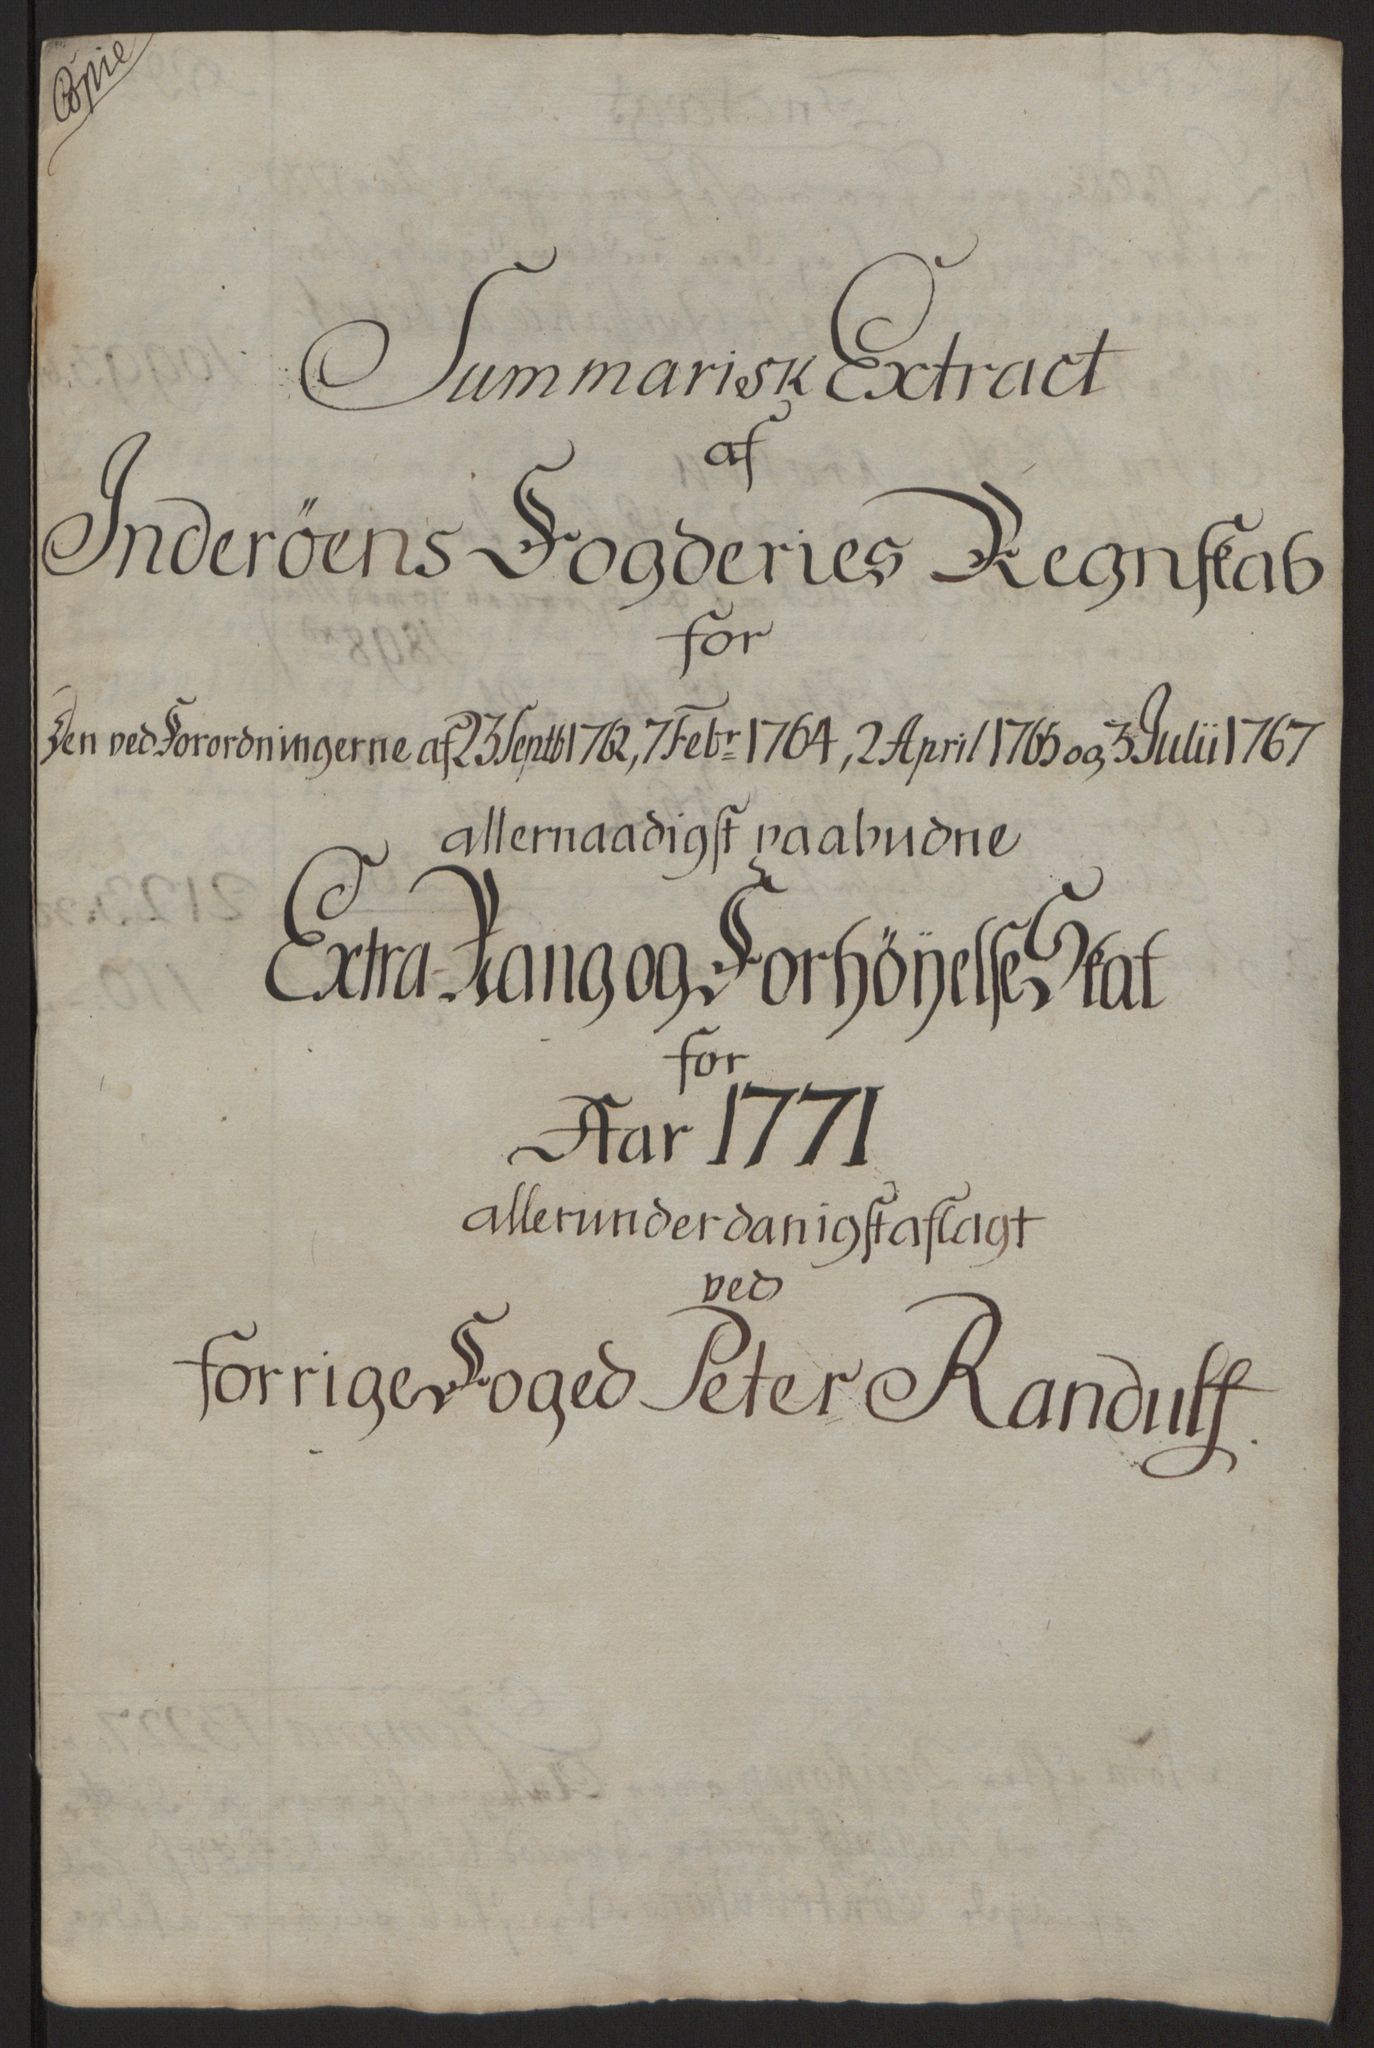 Copie
Summarisk Extract
af
Inderöens Fogderies Regnskab
for
Den ved Forordningerne af 23 Septb 1762, 7 Febr 1764, 2 April 1765 og 3 Julii 1767
allernaadigst paabudne
Extra-Rang og Forhöÿelse Skat
for
Aar 1771
allerunderdanigst aflagt
ved
forrige Foged Peter Randulff.